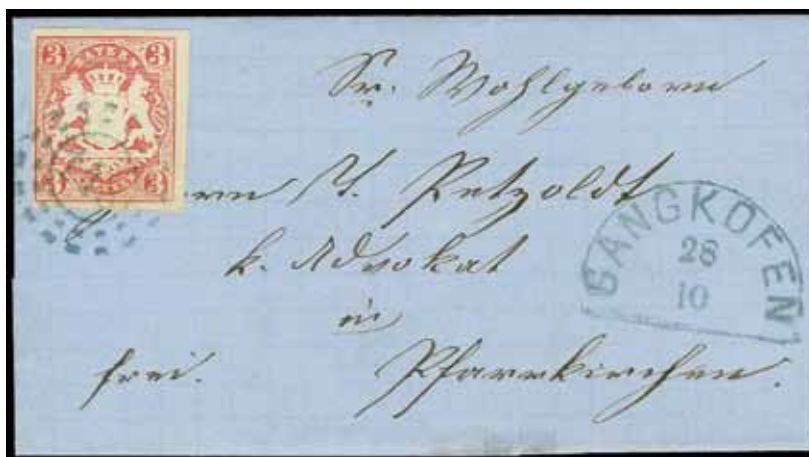 3 BAYERN 3
3 3
Sr. Wohlgeborn
T. Petzoldt
k. Advokat
in
frei. Pfarrkirchen.
GANGKOFEN
28
10